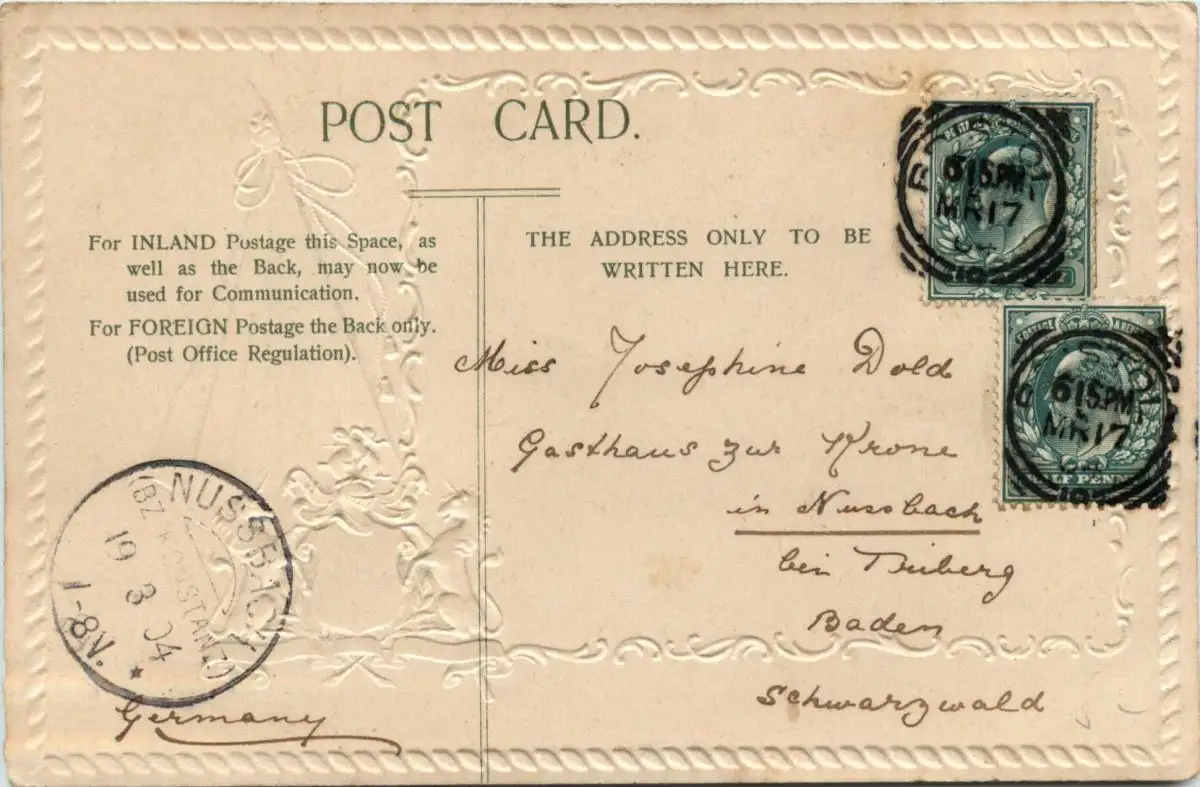 POST CARD.
For INLAND Postage this Space, as
well as the Back, may now be
used for Communication.
For FOREIGN Postage the Back only.
(Post Office Regulation).
THE ADDRESS ONLY TO BE
WRITTEN HERE.
615PM
MR17
04
615PM
MR17
04
Miss Josephine Dold
Gasthaus zur Krone
in Nussbach
bei Triberg
Baden
Schwarzwald
NUSSBACH
(BZ. KONSTANZ)
19 3 04
1-8V.
Germany